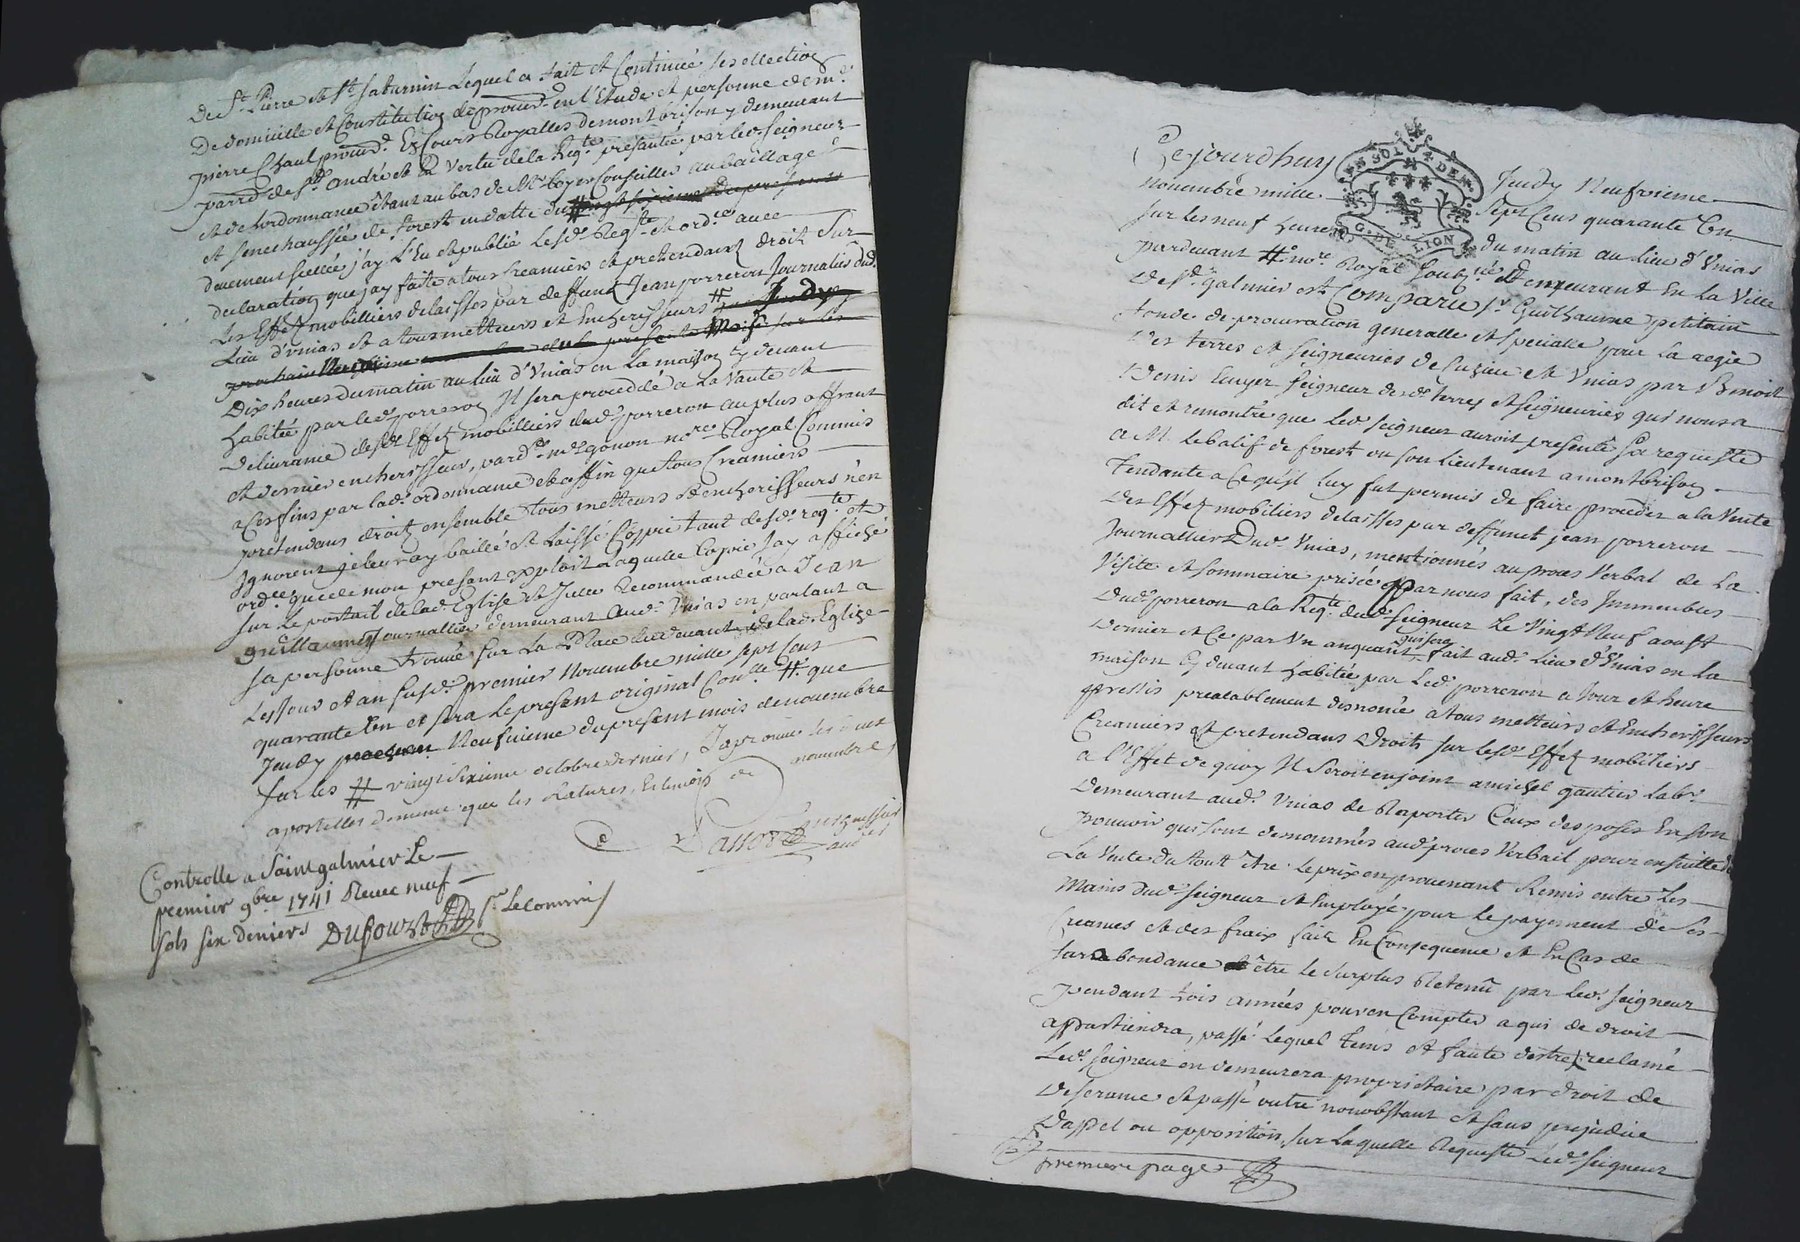 De St Pierre & St Saturnin Lequel a fait et Continüé ses ellection
De domicille et Constitution de procur. en l'Etude et personne de me.
pierre Chaul procur. Ez Cours Royalles de montbrison y demeurant
parr. de St. andré et En Vertu de la Reqte presantée par led. seigneur
et de lordonnance êtant au bas de Mr. Conseillier au baillage
et senechaussée de forest en datte du vingt sixieme du present
deuement scellée j'ay Leu et publié lesd. Reqte et ordce. avec
declaration que jay faite a tous creanciers et pretendant droit sur
les Effets mobilliers delaissés par deffunt Jean porreron Journalier dud.
Lieu d'Unias et a tous metteurs et Encherisseurs # Jeudy
prochain Neufvieme du present Mois sur les
Dix heures du matin au lieu d'Unias en La maison Cy devant
habitée par led. porreron Il sera procedé a La Vante et
delivrance desd. Effets mobilliers dud. porreron au plus offrant
et dernier encherisseur, pard. me gonon nore. Royal Commis
a Ces fins par lad. ordonnance et affin que tous Creanciers
pretendans droit ensemble tous metteurs & encherisseurs n'en
Ignorent je leur ay baillé et Laissé Coppie tant desd. reqte. et
ordce. que de mon present exploit Laquelle Copie J'ay affiché
sur le portail de lad. Eglise et Icelle Recommandée a Jean
guillaume Journallier demeurant aud. Unias en parlant a
sa personne trouvé sur La Place au devant de lad. Eglize
Les Jour et an susd. premier Novembre mille sept Cent
quarante Un et sera le present original Conlle #. que
Jeudy Neufvieme du present mois de novembre
sur les # vingt sixieme octobre dernier, J'aprouve les
apostilles de meme que les Ratures, Et le mois de novembre
huissier
Controllé a Saint galmier Le
premier 9bre 1741 Receu neuf
sols six deniers Dubourt pr. Le commis
Cejourdhuy Jeudy Neufvieme
EN SOL 4 DEN
G. DE LION
Novembre mille Sept Cens quarante Un
sur les neuf heures du matin au Lieu d'Unias
pardevant # nore Royal soubzné & demeurant En La Ville
de St. galmier est Comparu sr. Guilhaume petitain
fondé de procuration generalle et specialle pour La regie
des terres et seigneuries de Cuzieu et Unias par Benoit
Denis Ecuyer seigneur desd. terres et seigneuries qui nous a
dit et remontré que led. seigneur auroit presenté sa requeste
a Mr. le balif de forest ou son Lieutenant a montbrison
Tendante a Ce qu'il Luy fut permis de faire proceder a la Vente
des Effets mobiliers delaissés par deffunct jean porreron
Journallier dud. Unias, mentionnés au proces Verbal de La
Visite et sommaire prisée par nous fait, des Immeubles
dud. porreron a la Reqte. dud. seigneur Le Vingt Neuf aoust
dernier et Ce par Un anquant qui sera fait aud. Lieu d'Unias en la
maison Cy devant habitée par Led. porreron a Jour et heure
prefix prealablement denoncé a tous metteurs et Encherisseurs
Creanciers et pretendans Droits sur lesd. Effets mobiliers
a l'Effet de quoy Il seroit enjoint a michel gautier Labr.
Demeurant aud. Unias de Raporter Ceux desposés En son
pouvoir qui sont denommés aud. proces Verbail pour ensuitte de
La Vente du tout être le prix en provenant Remis entre Les
Mains dud. seigneur et Employé pour Le payement de ses
Creances et des fraix faits En Consequence et En Cas de
surabondance être le surplus Retenû par led. seigneur
pendant trois années pour en Compter a qui de droit
appartiendra, passé Lequel tems et faute d'estre reclamé
Led. seigneur en demeurera proprietaire par droit de
et passé outre nonobstant et sans prejudice
Dappel ou opposition, sur Laquelle Requeste led. seigneur
premiere page